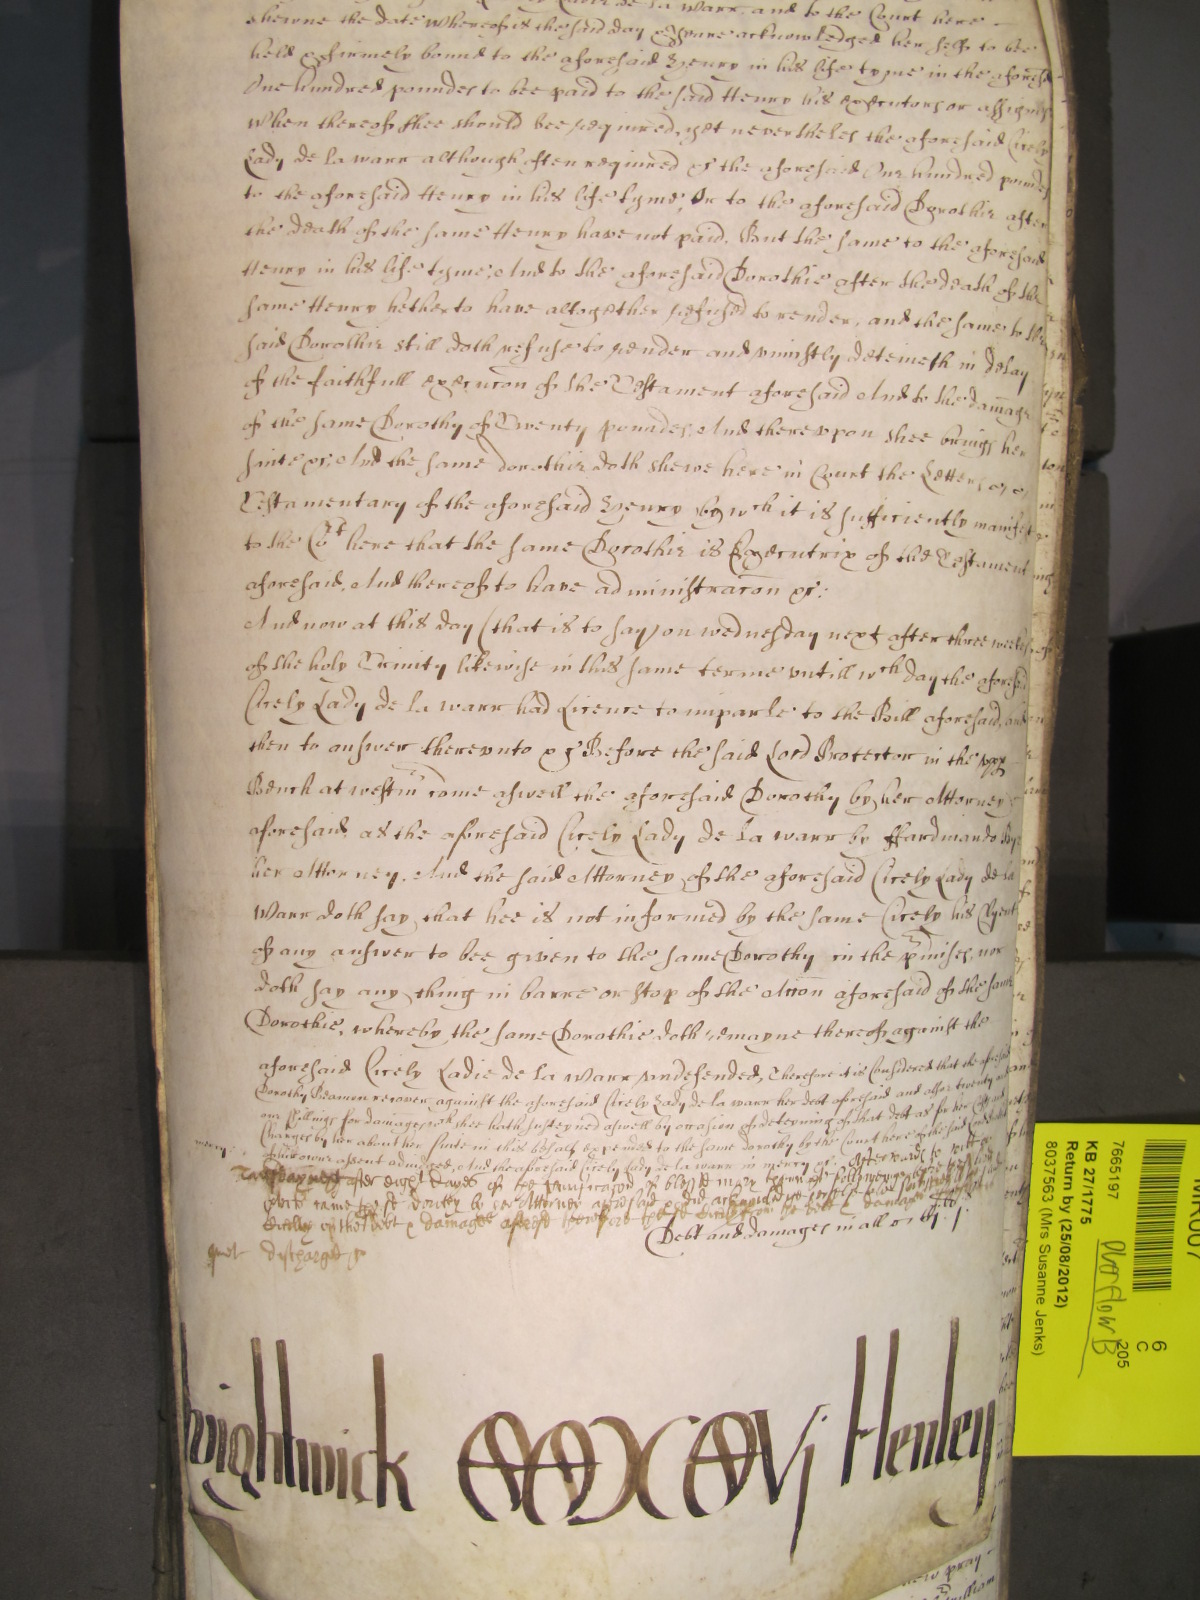 de la warr, and to the Court here
shewne the date whereof is the said day & yeare acknowledged her selfe to bee
held & firmely bound to the aforesaid Henry in his life tyme in the aforesd
One hundred poundes to bee paid to the said Henry his executors or assignes
When thereof shee should bee required, yet neverthelес the aforesaid Cicely
Lady de la warr although often required &c the aforesaid One hundred poundes
to the aforesaid Henry in his life tyme, Or to the aforesaid Dorothie after
the death of the same Henry have not paid. But the same to the aforesaid
Henry in his life tyme, And to the aforesaid Dorothie after the death of the
same Henry hetherto have altogether refused to render, and the same to the
said Dorothie still doth refuse to render and uniustly deteineth in delay
of the faithfull execucon of the Testament aforesaid And to the damage
of the same Dorothy of Twenty poundes, And thereupon shee brings her
suite &c, And the same dorothie doth shewe here in Court the Letters
Testamentary of the aforesaid Henry by wch it is sufficiently manifest
to the Cort here that the same Dorothie is Executrix of the Testament
aforesaid, And thereof to have administracon &c:
And now at this day (that is to say) on wednesday next after three weekes
of the holy Trinity likewise in this same terme untill wch day the aforesaid
Cicely Lady de la warr had Licence to imparle to the Bill aforesaid, and
then to answer thereunto &c Before the said Lord Protector in the upper
Bench at westm come aswell the aforesaid Dorothy by her Attorney
aforesaid, as the aforesaid Cicely Lady de la warr by ffardinando
her Attorney, And the said Attorney of the aforesaid Cicely Lady de la
Warr doth say that hee is not informed by the same Cicely his Clyent
of any answer to bee given to the same Dorothy in the pmisses, nor
doth say any thing in barre or stop of the Accon aforesaid of the same
Dorothie, whereby the same Dorothie doth remayne thereof against the
aforesaid Cicely Ladie de la Warr undefended, Therefore it is Considered that the aforesaid
Dorothy Beamon recover against the aforesaid Cicely Lady de la warr her debt aforesaid and also twenty and
one shillings for damages wch shee hath susteyned aswell by occasion of deteyning of that debt as for her Costs and
Charges by her about her suite in this behalf expended to the same dorothy by the Court here of the said
of her owne assent adiudged, And the aforesaid Cicely Lady de la warr in mercy &c. Afterwards to witt on
mercy
next after eight dayes of the purificacon of blessed mary then next following before the said Lord
came the sd Dorothy by her Attorney aforesaid & did acknowledge
Cicely of the debt & damages aforesd therefore
quet discharged &c
Debt and damages in all
Wightwick MMDCCCVj Henley
pray
william
MR007
7665197
KB 27/1775
Return by (25/08/2012)
8037563 (Mrs Susanne Jenks)
Overflow B
6
C
205